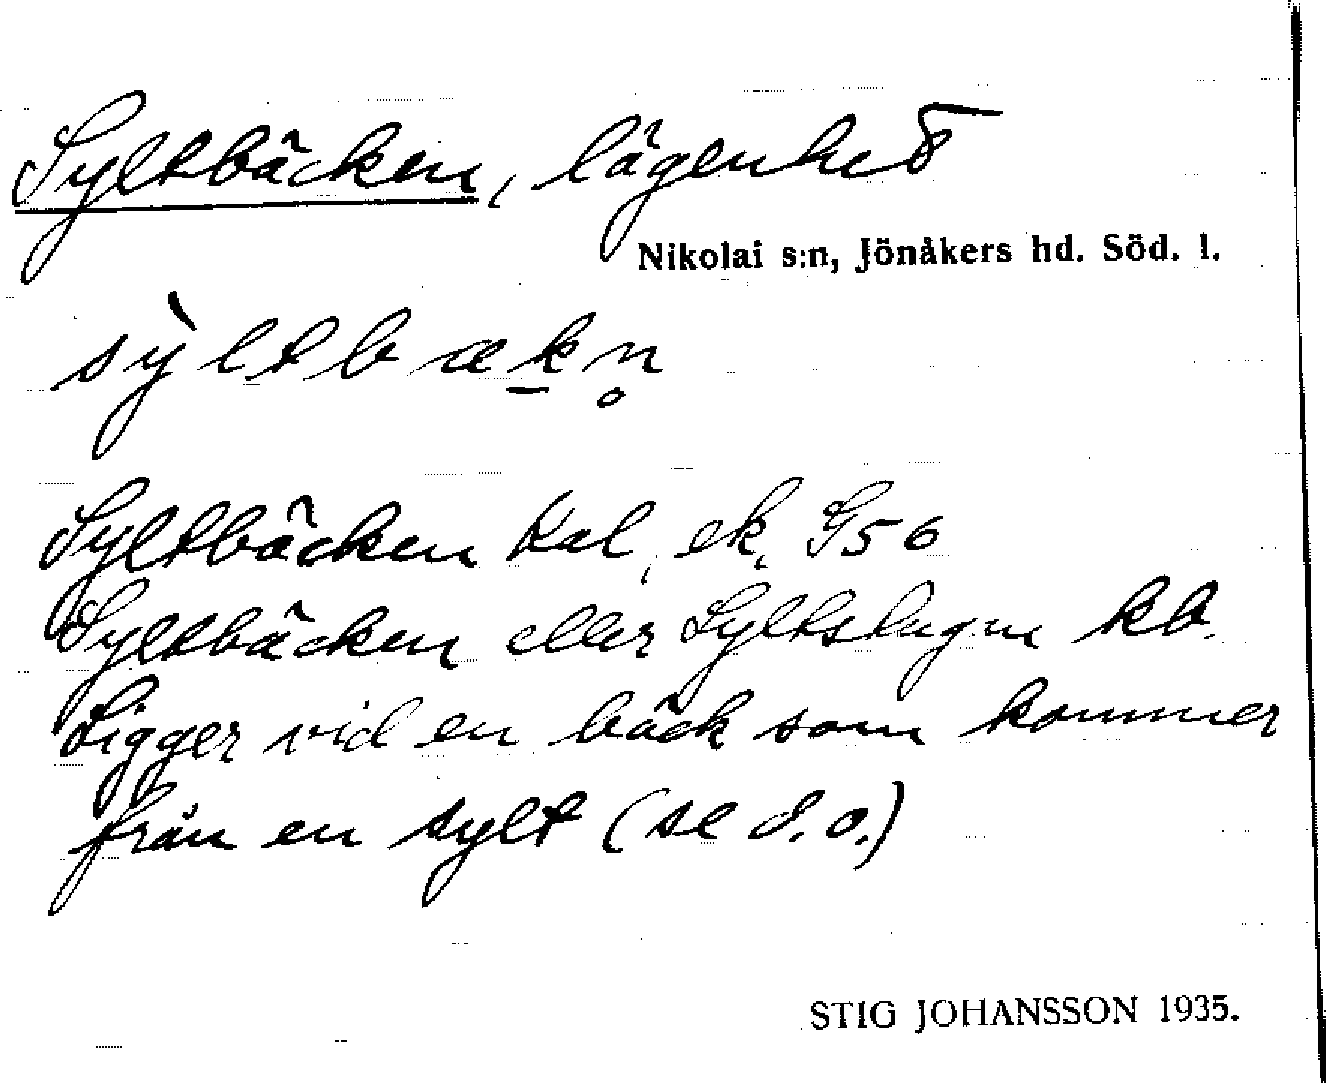 Syltbäcken, lägenhet
Nikolai s:n, Jönåkers hd. Söd. l.
sỳltbæk̲n̥
Syltbäcken Kal, ek, G56
Syltbäcken eller Syltstugan kb.
Ligger vid en bäck som kommer
från en sylt (se d.o.)
STIG JOHANSSON 1935.